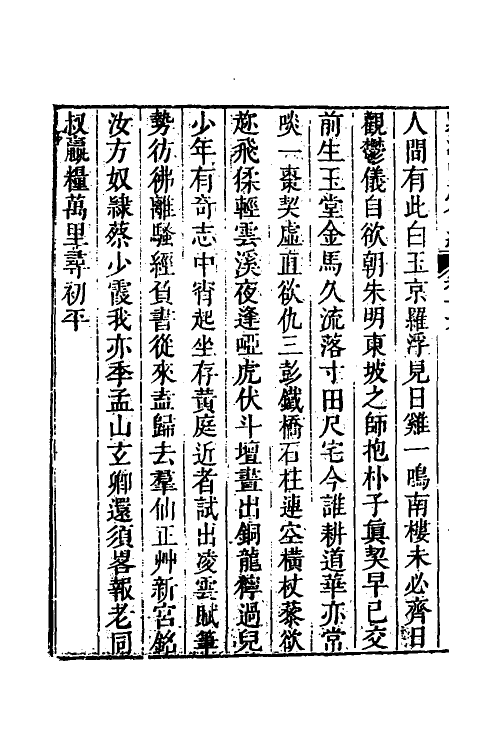 人間有此白玉京羅浮見日雞一鳴南樓未必齊日
觀鬱儀自欲朝朱明東坡之師抱朴子眞契早已交
前生玉堂金馬久流落寸田尺宅今誰耕道華亦常
啖一棗契虛直欲仇三彭鐵橋石柱連空橫杖藜欲
趂飛猱輕雲溪夜逢啞虎伏斗壇晝出銅龍獰過兒
少年有奇志中宵起坐存黃庭近者試出凌雲賦筆
勢彷彿離騷經負書從來盍歸去羣仙正艸新宮銘
汝方奴隷蔡少霞我亦季孟山玄卿還須畧報老同
叔贏糧萬里尋初平